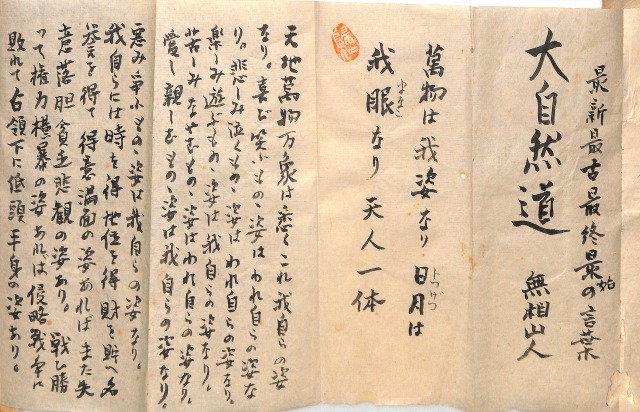 最新最古最終最始の言葉
大自然道 無相山人
萬物は我姿なり 日月は
我眼なり 天人一体
天地萬物万象は悉くこれ我自らの姿
なり。喜び笑ふもの、姿はわれ自らの姿な
り。悲しみ泣くもの、姿はわれ自らの姿なり。
楽しみ遊ぶもの、姿は我自らの姿なり。
苦しみなやむもの、姿はわれ自らの姿なり。
愛し親しむもの、姿は我自らの姿なり。
悪み争ふもの、姿は我自らの姿なり。
我自らには時を得地位を得財を貯へ名
誉を得て得意満面の姿あれば また失
意落胆貧乏悲観の姿あり。 戦ひ勝
って権力横暴の姿あれば侵略戦争に
敗れて占領下に低頭平身の姿あり。